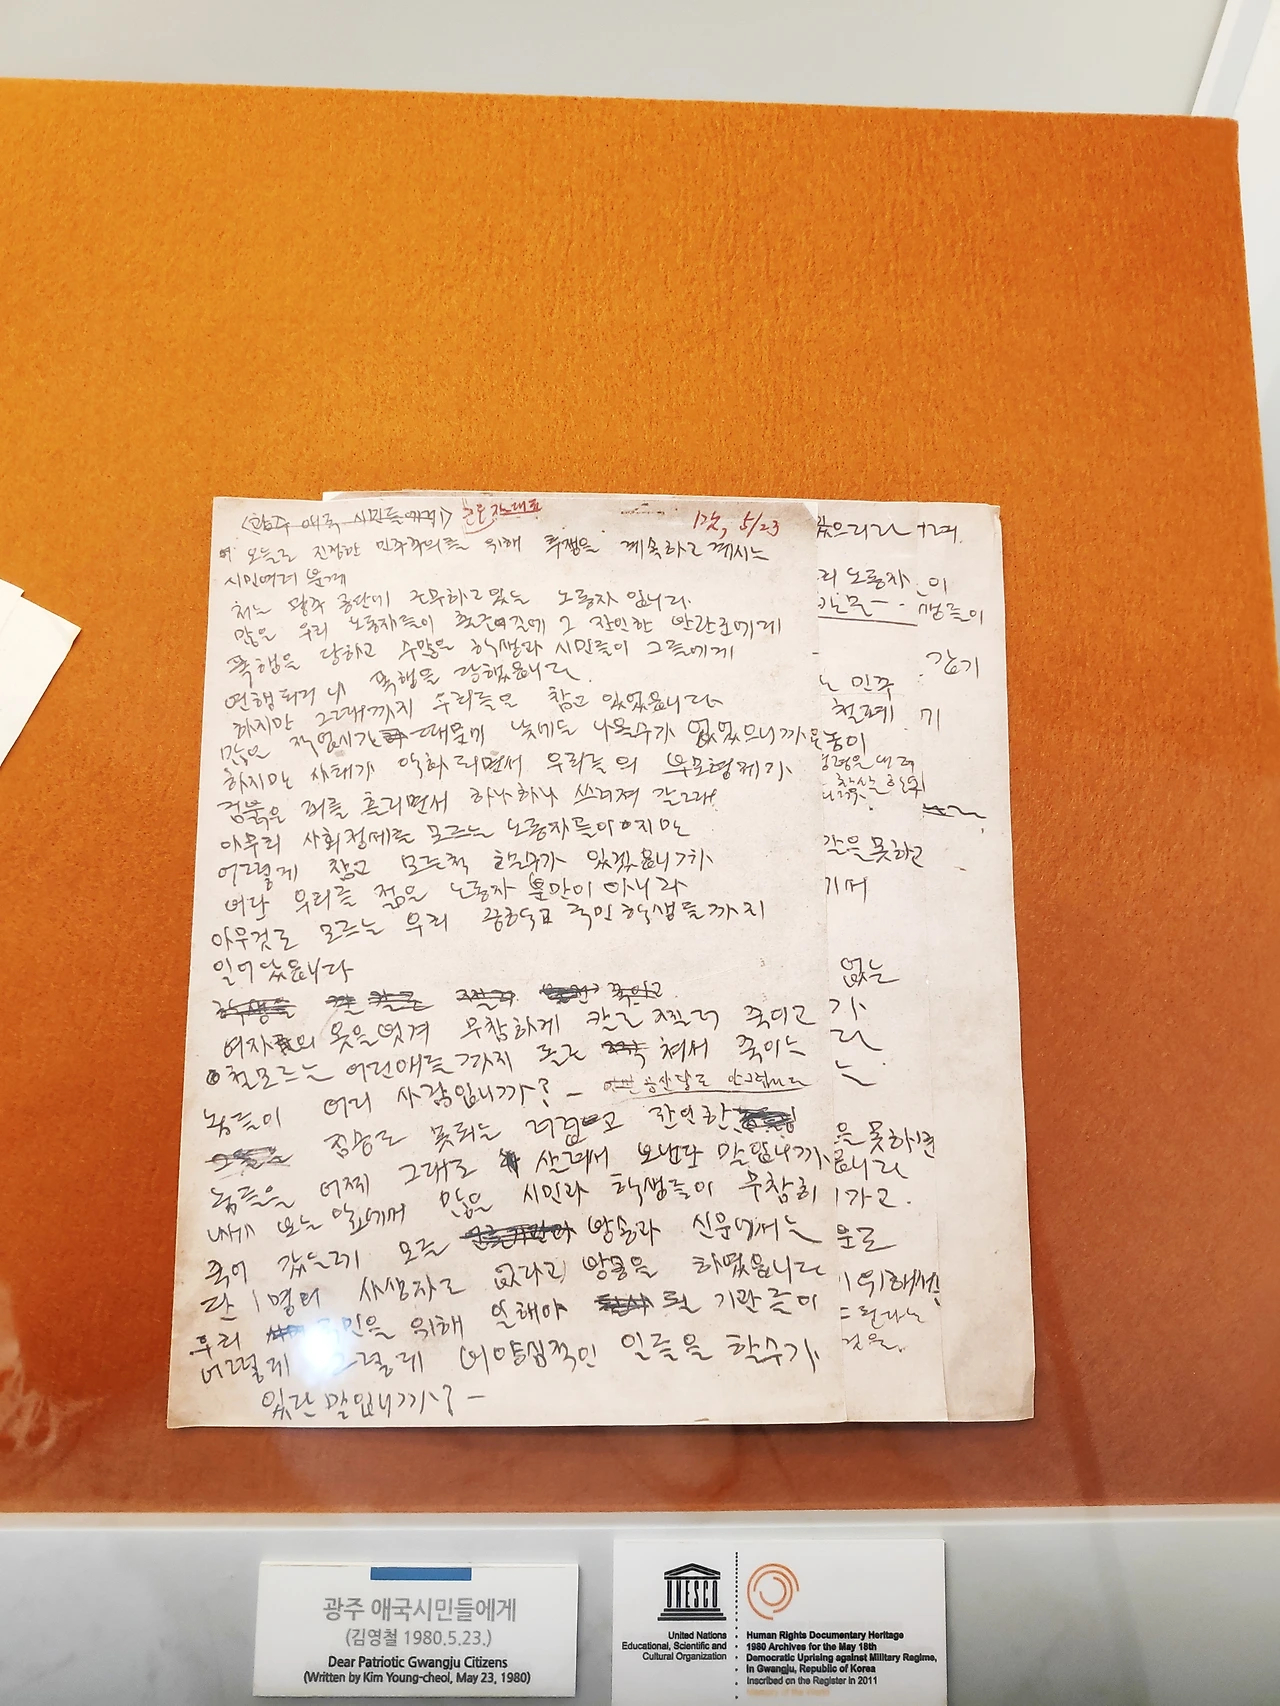 <광주 애국 시민들에게> 근로자대표 5/23
오늘도 진정한 민주주의를 위해 투쟁을 계속하고 계시는
시민여러 분께
저는 광주 공단에 근무하고 있는 노동자 입니다.
많은 우리 노동자들이 출근길에 그 잔인한 에게
폭행을 당하고 수많은 학생과 시민들이 그들에게
연행되거나 폭행을 당했읍니다.
하지만 그때까지 우리들은 참고 있었읍니다
많은 작업시간 때문에 낮에는 나올수가 없었으니까요
하지만 사태가 악화 되면서 우리들의 부모형제가
검붉은 피를 흘리면서 하나하나 쓰러져 갈때
아무리 사회정세를 모르는 노동자들이지만
어떻게 참고 모른척 할수가 있겠읍니까
비단 우리들 젊은 노동자 뿐만이 아니라
아무것도 모르는 우리 중학교 국민학생들까지
일어 났읍니다
여자들의 옷을벗겨 무참하게 칼로 찔러 죽이고
철모르는 어린애들까지 쳐서 죽이는
놈들이 어찌 사람입니까? - 공산당도 안그럽니다
짐승도 못되는 더럽고 잔인한
놈들을 어찌 그대로 살려서 보낸단 말입니까
오늘 많은 시민과 학생들이 무참히
죽어 갔는데 모든 방송과 신문에서는
단 1명의 사생자도 없다고 방송을 하였읍니다
우리 국민을 위해 일해야 될 기관들이
어떻게 그렇게 비양심적인 일들을 할수가
있단 말입니까? -
리 노동자 이
생들이
갑기
는 민주
철폐 기
동이
같은못하고
기며
없는
가
라
는
을 못하면
읍니다
가고.
문도
위해선
된다는
것을.
광주 애국시민들에게
(김영철 1980.5.23.)
Dear Patriotic Gwangju Citizens
(Written by Kim Young-cheol, May 23, 1980)
UNESCO
United Nations
Educational, Scientific and
Cultural Organization
Human Rights Documentary Heritage
1980 Archives for the May 18th
Democratic Uprising against Military Regime,
in Gwangju, Republic of Korea
Inscribed on the Register in 2011
Memory of the World